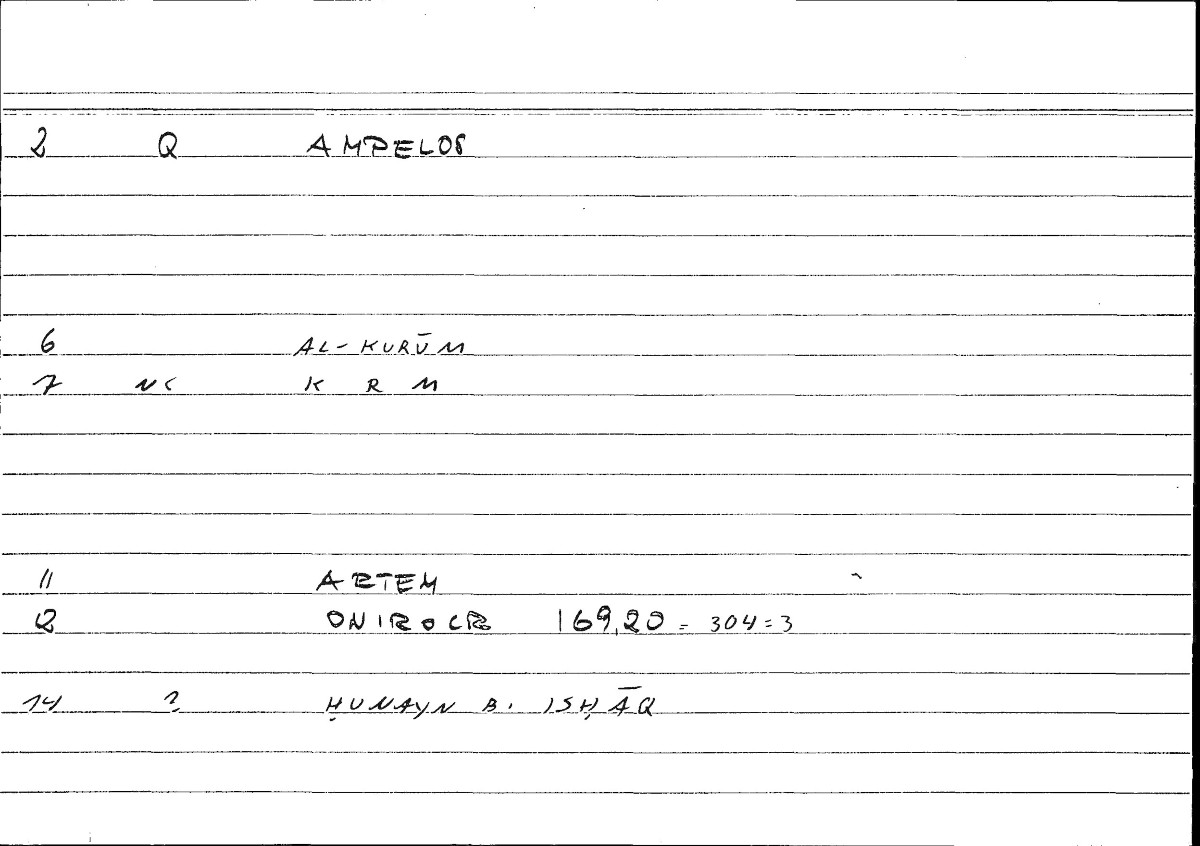 2 Q AMPELOS
6 AL-KURŪM
7 NC K R M
11 ARTEM
12 ONIROCR 169,20 = 304=3
14 ? ḤUNAYN B. ISḤĀQ